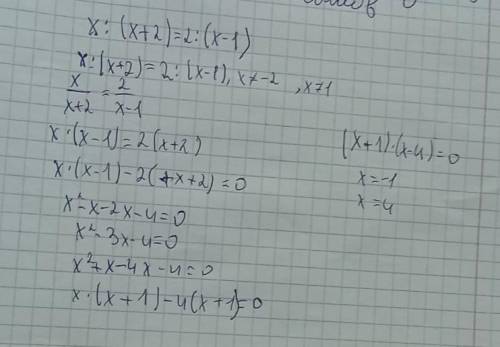 x:(x+2)=2:(x-1)
x:(x+2)=2:(x-1), x≠-2, x≠1
x/(x+2)=2/(x-1)
x·(x-1)=2(x+2)
x·(x-1)-2(+x+2)=0
x²-x-2x-4=0
x²-3x-4=0
x²+x-4x-4=0
x·(x+1)-4(x+1)=0
(x+1)·(x-4)=0
x=-1
x=4